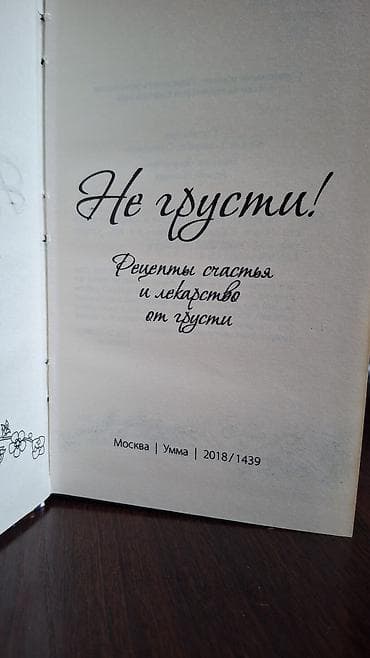 Не грусти!
Рецепты счастья
и лекарство
от грусти
Москва | Умма | 2018/1439